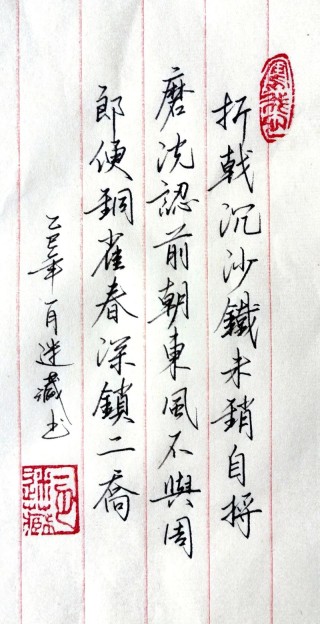 折戟沉沙鐵未銷自將
磨洗認前朝東風不與周
郎便銅雀春深鎖二喬
乙巳年一月迷藏书